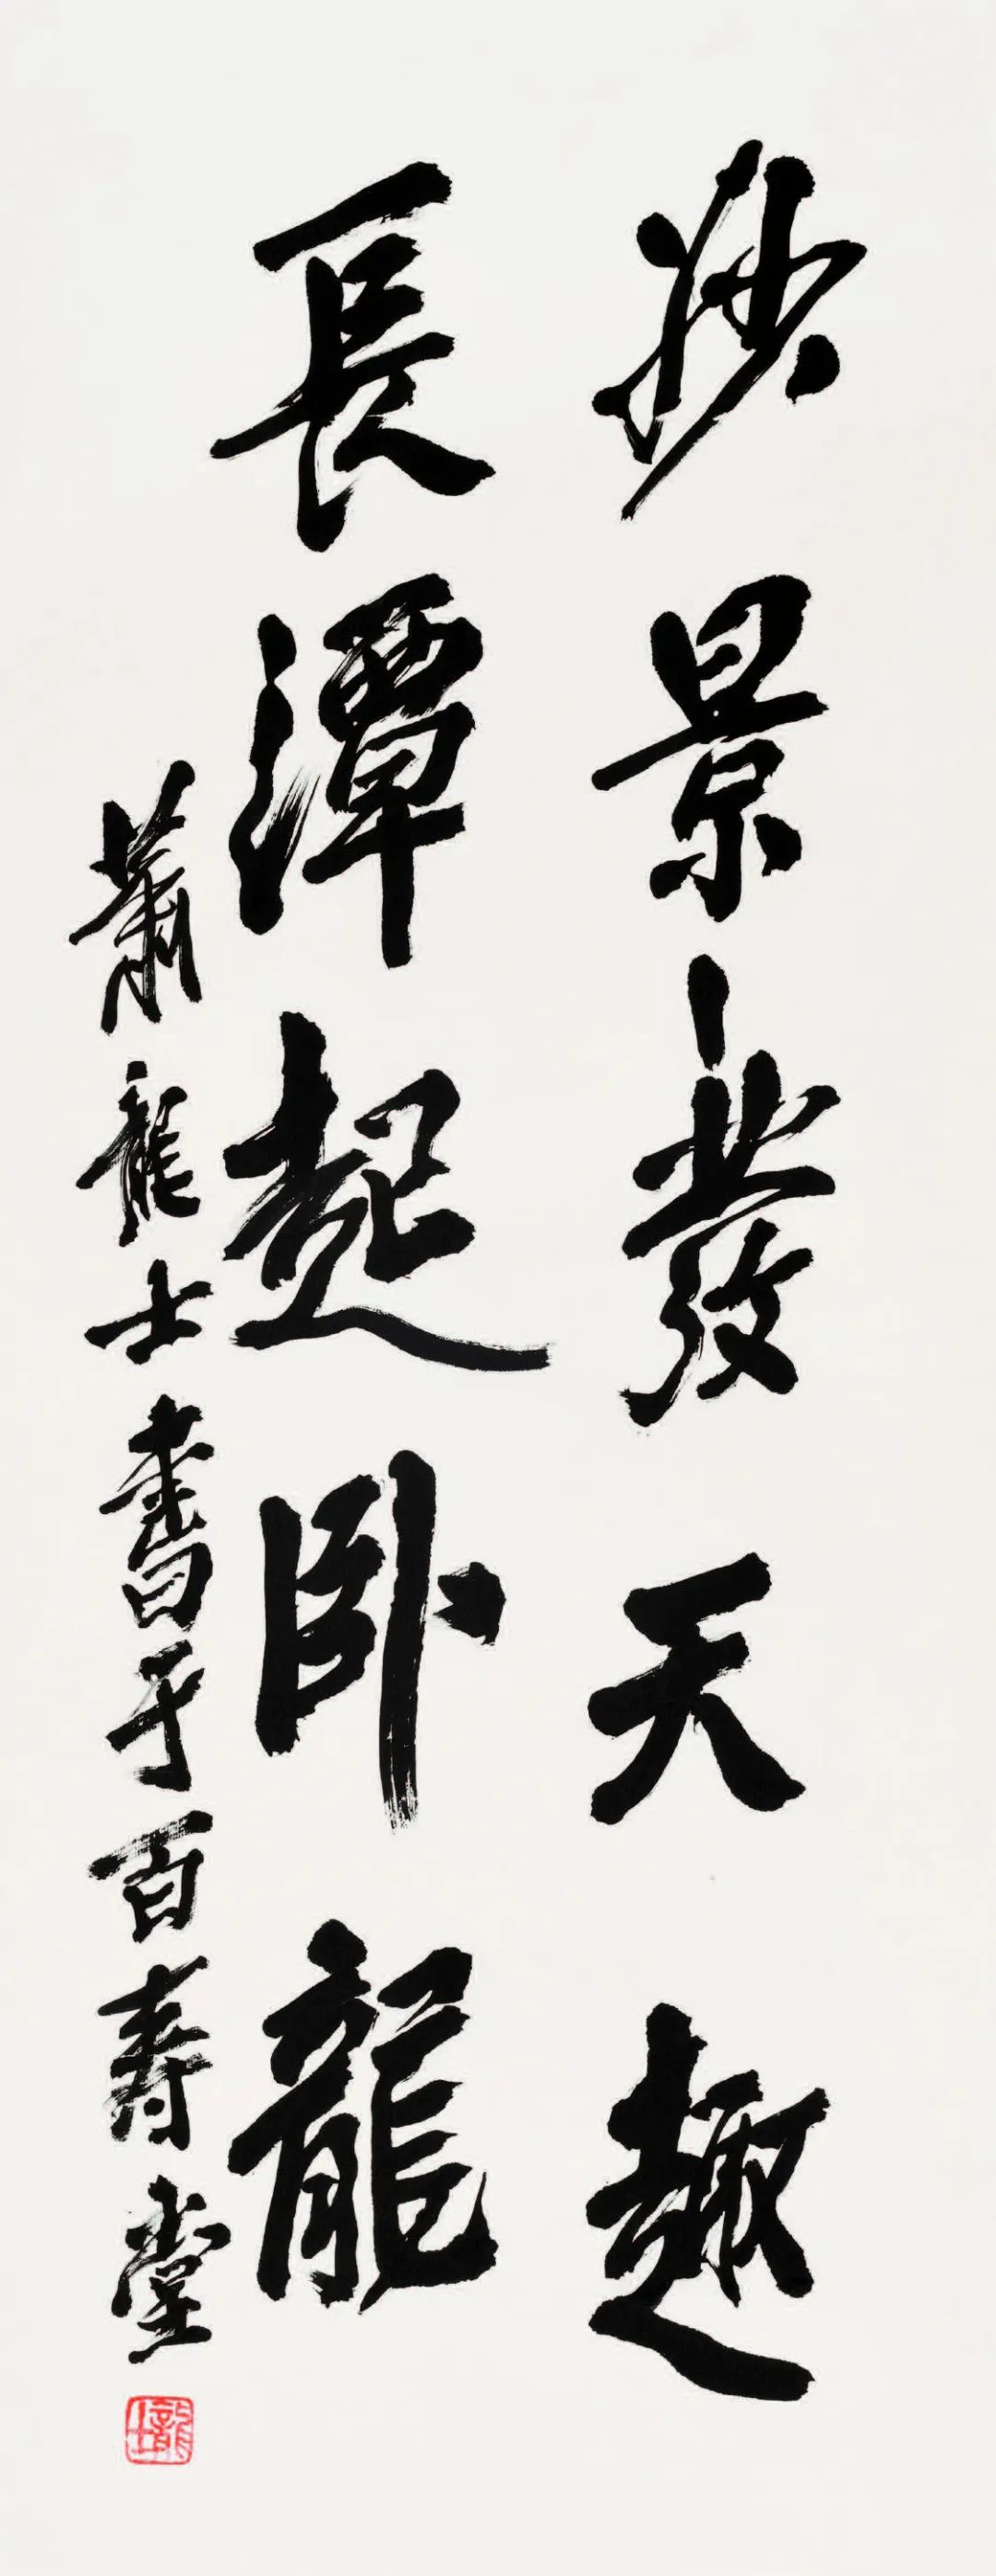 妙景發天趣
長潭起卧龍
蕭龍士書于百壽堂
龍士